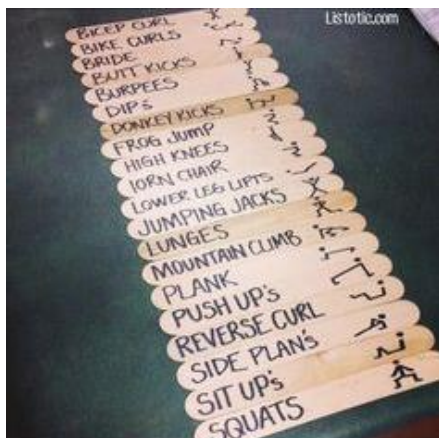 Listotic.com
BICEP CURL
BIKE CURLS
BRIDE
BUTT KICKS
BURPEES
DIP's
DONKEY KICKS
FROG JUMP
HIGH KNEES
IORN CHAIR
LOWER LEG LIFTS
JUMPING JACKS
LUNGES
MOUNTAIN CLIMB
PLANK
PUSH UP's
REVERSE CURL
SIDE PLAN's
SIT UP's
SQUATS